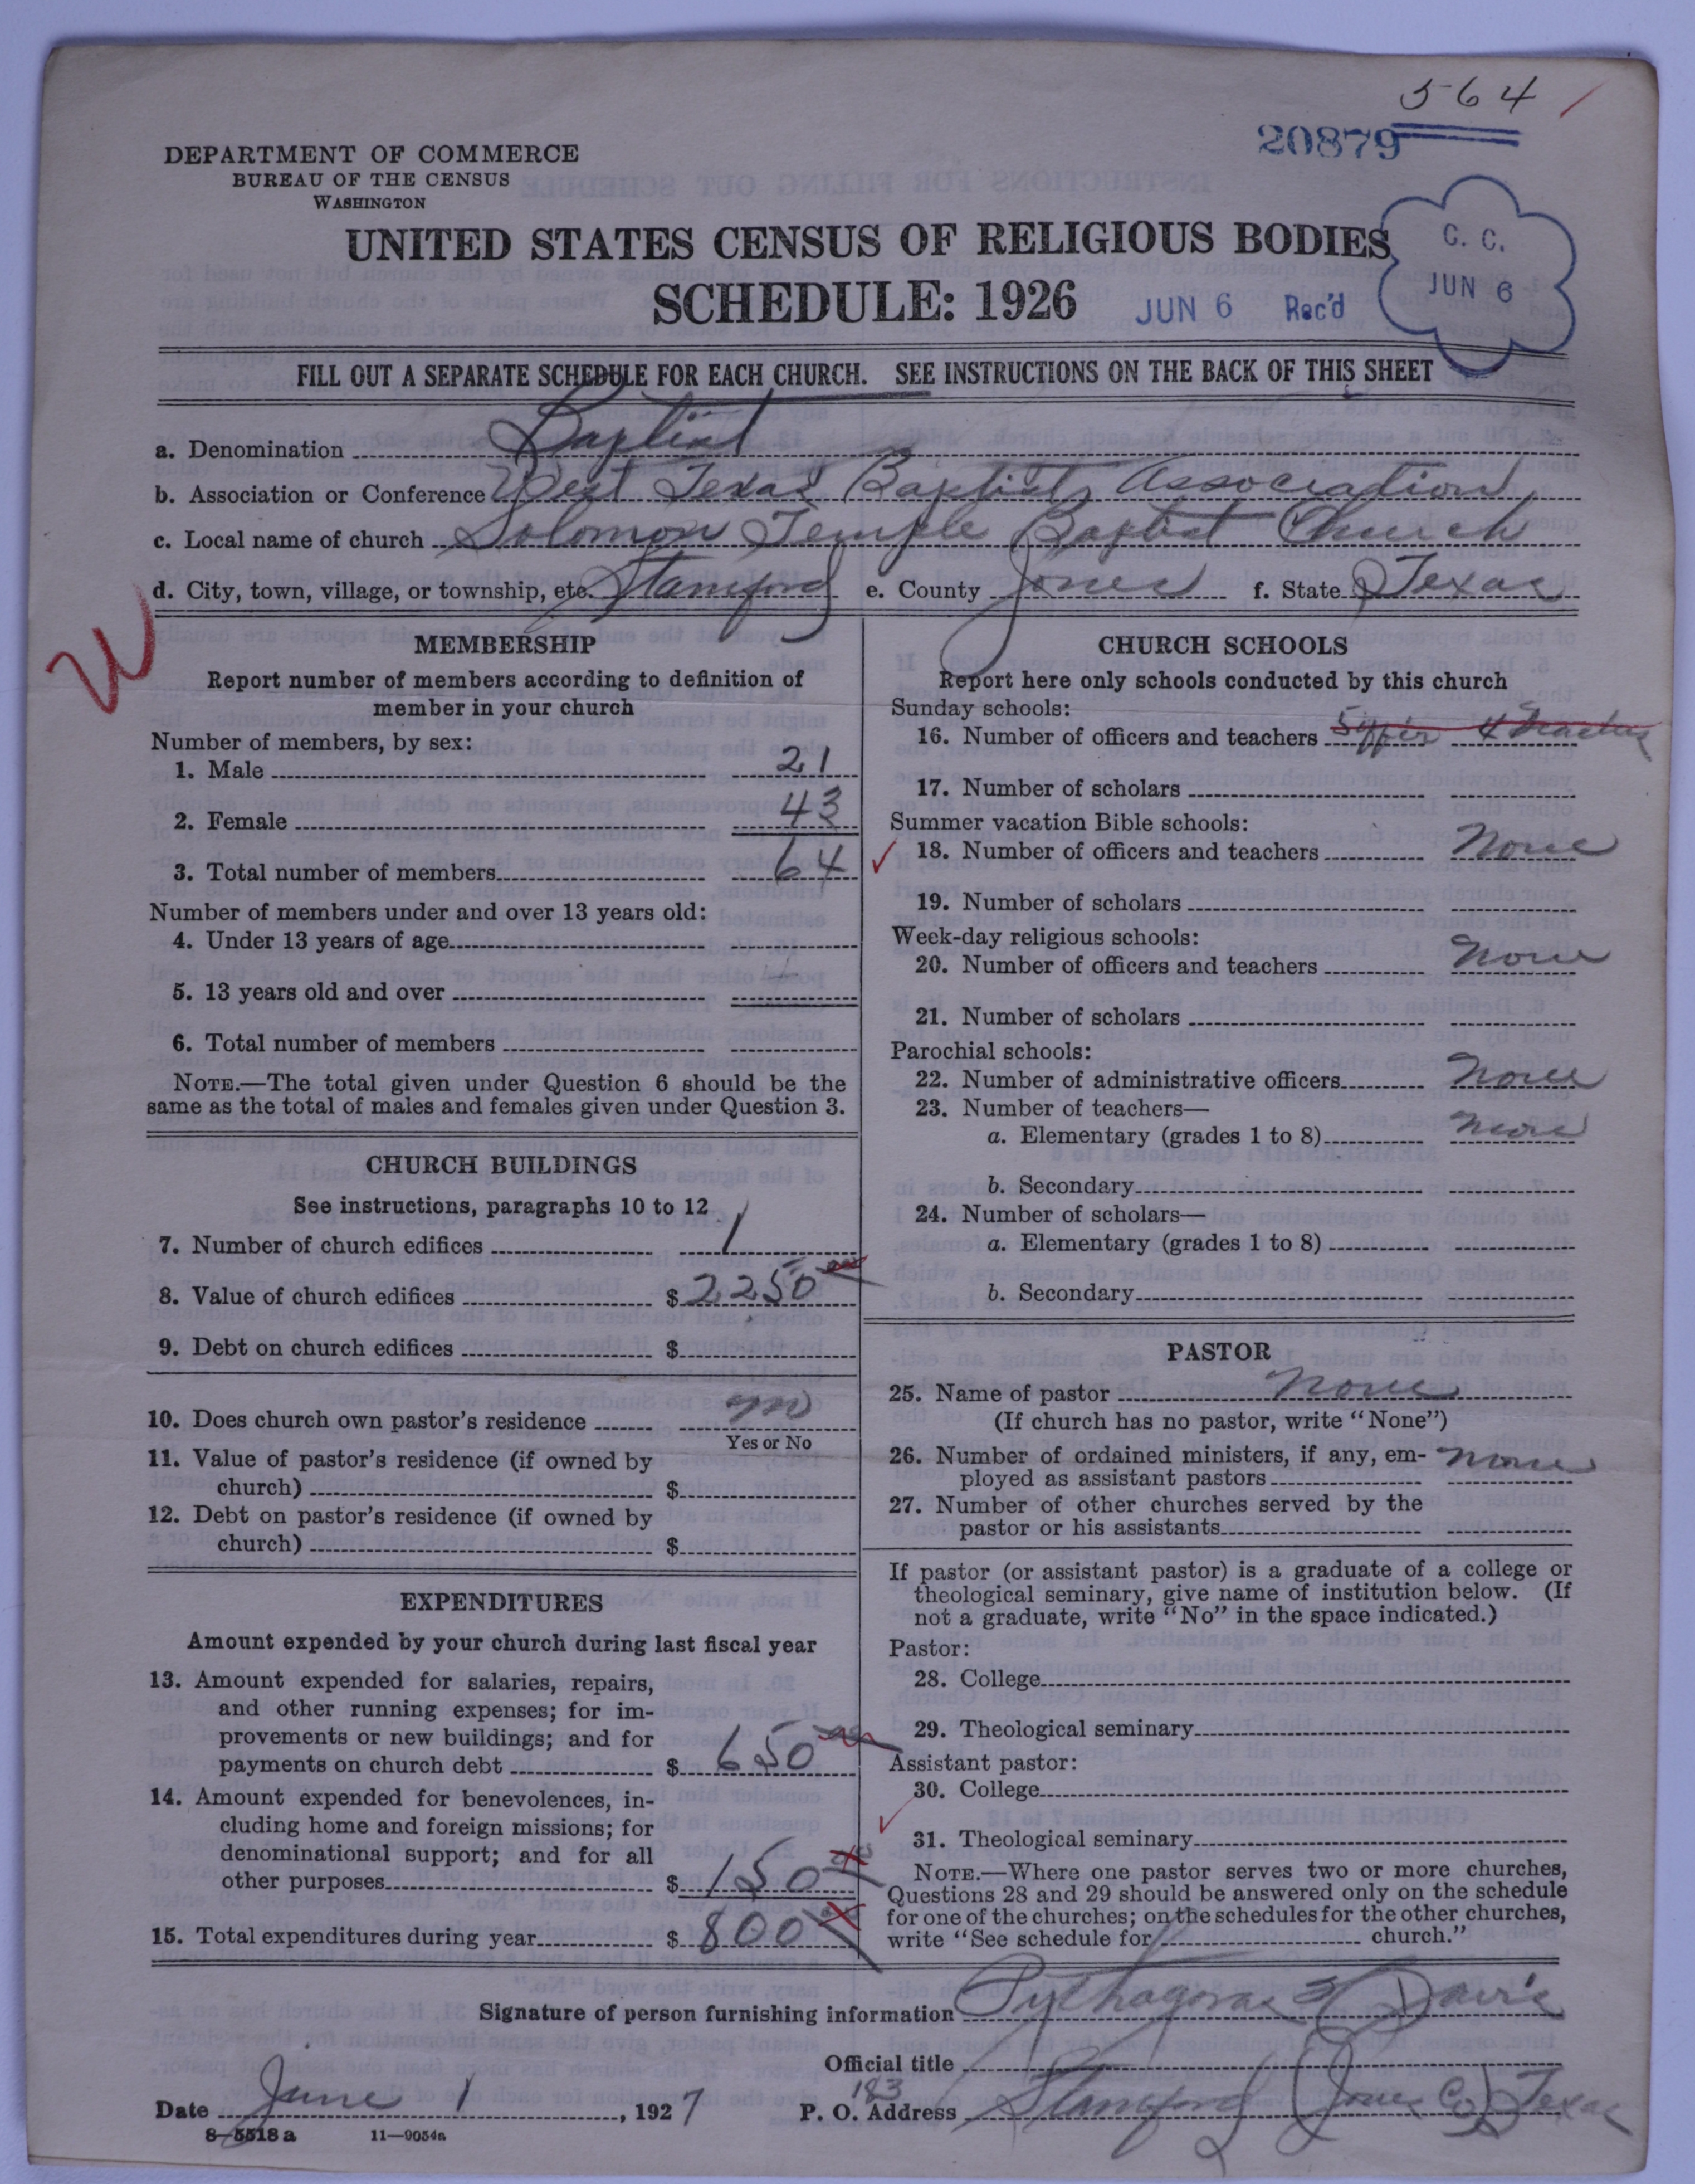 564 /
20879
DEPARTMENT OF COMMERCE
BUREAU OF THE CENSUS
WASHINGTON
UNITED STATES CENSUS OF RELIGIOUS BODIES
SCHEDULE: 1926
JUN 6 Rec'd
C. C.
JUN 6
FILL OUT A SEPARATE SCHEDULE FOR EACH CHURCH. SEE INSTRUCTIONS ON THE BACK OF THIS SHEET
a. Denomination Baptist
b. Association or Conference West Texas Baptist Association
c. Local name of church Solomon Temple Baptist Church
d. City, town, village, or township, etc. Stamford e. County Jones f. State Texas
MEMBERSHIP
Report number of members according to definition of
member in your church
Number of members, by sex:
1. Male 21
2. Female 43
3. Total number of members 64
Number of members under and over 13 years old:
4. Under 13 years of age
5. 13 years old and over
6. Total number of members
NOTE.—The total given under Question 6 should be the
same as the total of males and females given under Question 3.
CHURCH BUILDINGS
See instructions, paragraphs 10 to 12
7. Number of church edifices 1
8. Value of church edifices $ 2250
9. Debt on church edifices $
10. Does church own pastor's residence no
Yes or No
11. Value of pastor's residence (if owned by
church) $
12. Debt on pastor's residence (if owned by
church) $
EXPENDITURES
Amount expended by your church during last fiscal year
13. Amount expended for salaries, repairs,
and other running expenses; for im-
provements or new buildings; and for
payments on church debt $ 650
14. Amount expended for benevolences, in-
cluding home and foreign missions; for
denominational support; and for all
other purposes $ 150
15. Total expenditures during year $ 800
CHURCH SCHOOLS
Report here only schools conducted by this church
Sunday schools:
16. Number of officers and teachers 5 4 teachers
17. Number of scholars
Summer vacation Bible schools:
18. Number of officers and teachers None
19. Number of scholars
Week-day religious schools:
20. Number of officers and teachers None
21. Number of scholars
Parochial schools:
22. Number of administrative officers None
23. Number of teachers—
a. Elementary (grades 1 to 8) None
b. Secondary
24. Number of scholars—
a. Elementary (grades 1 to 8)
b. Secondary
PASTOR
25. Name of pastor None
(If church has no pastor, write "None")
26. Number of ordained ministers, if any, em-
ployed as assistant pastors None
27. Number of other churches served by the
pastor or his assistants
If pastor (or assistant pastor) is a graduate of a college or
theological seminary, give name of institution below. (If
not a graduate, write "No" in the space indicated.)
Pastor:
28. College
29. Theological seminary
Assistant pastor:
30. College
31. Theological seminary
NOTE.—Where one pastor serves two or more churches,
Questions 28 and 29 should be answered only on the schedule
for one of the churches; on the schedules for the other churches,
write "See schedule for church."
Signature of person furnishing information Pythagoras Davis
Official title
Date June 1, 1927 P. O. Address 183 Stamford (Jones Co) Texas
8-5518a 11-9054a